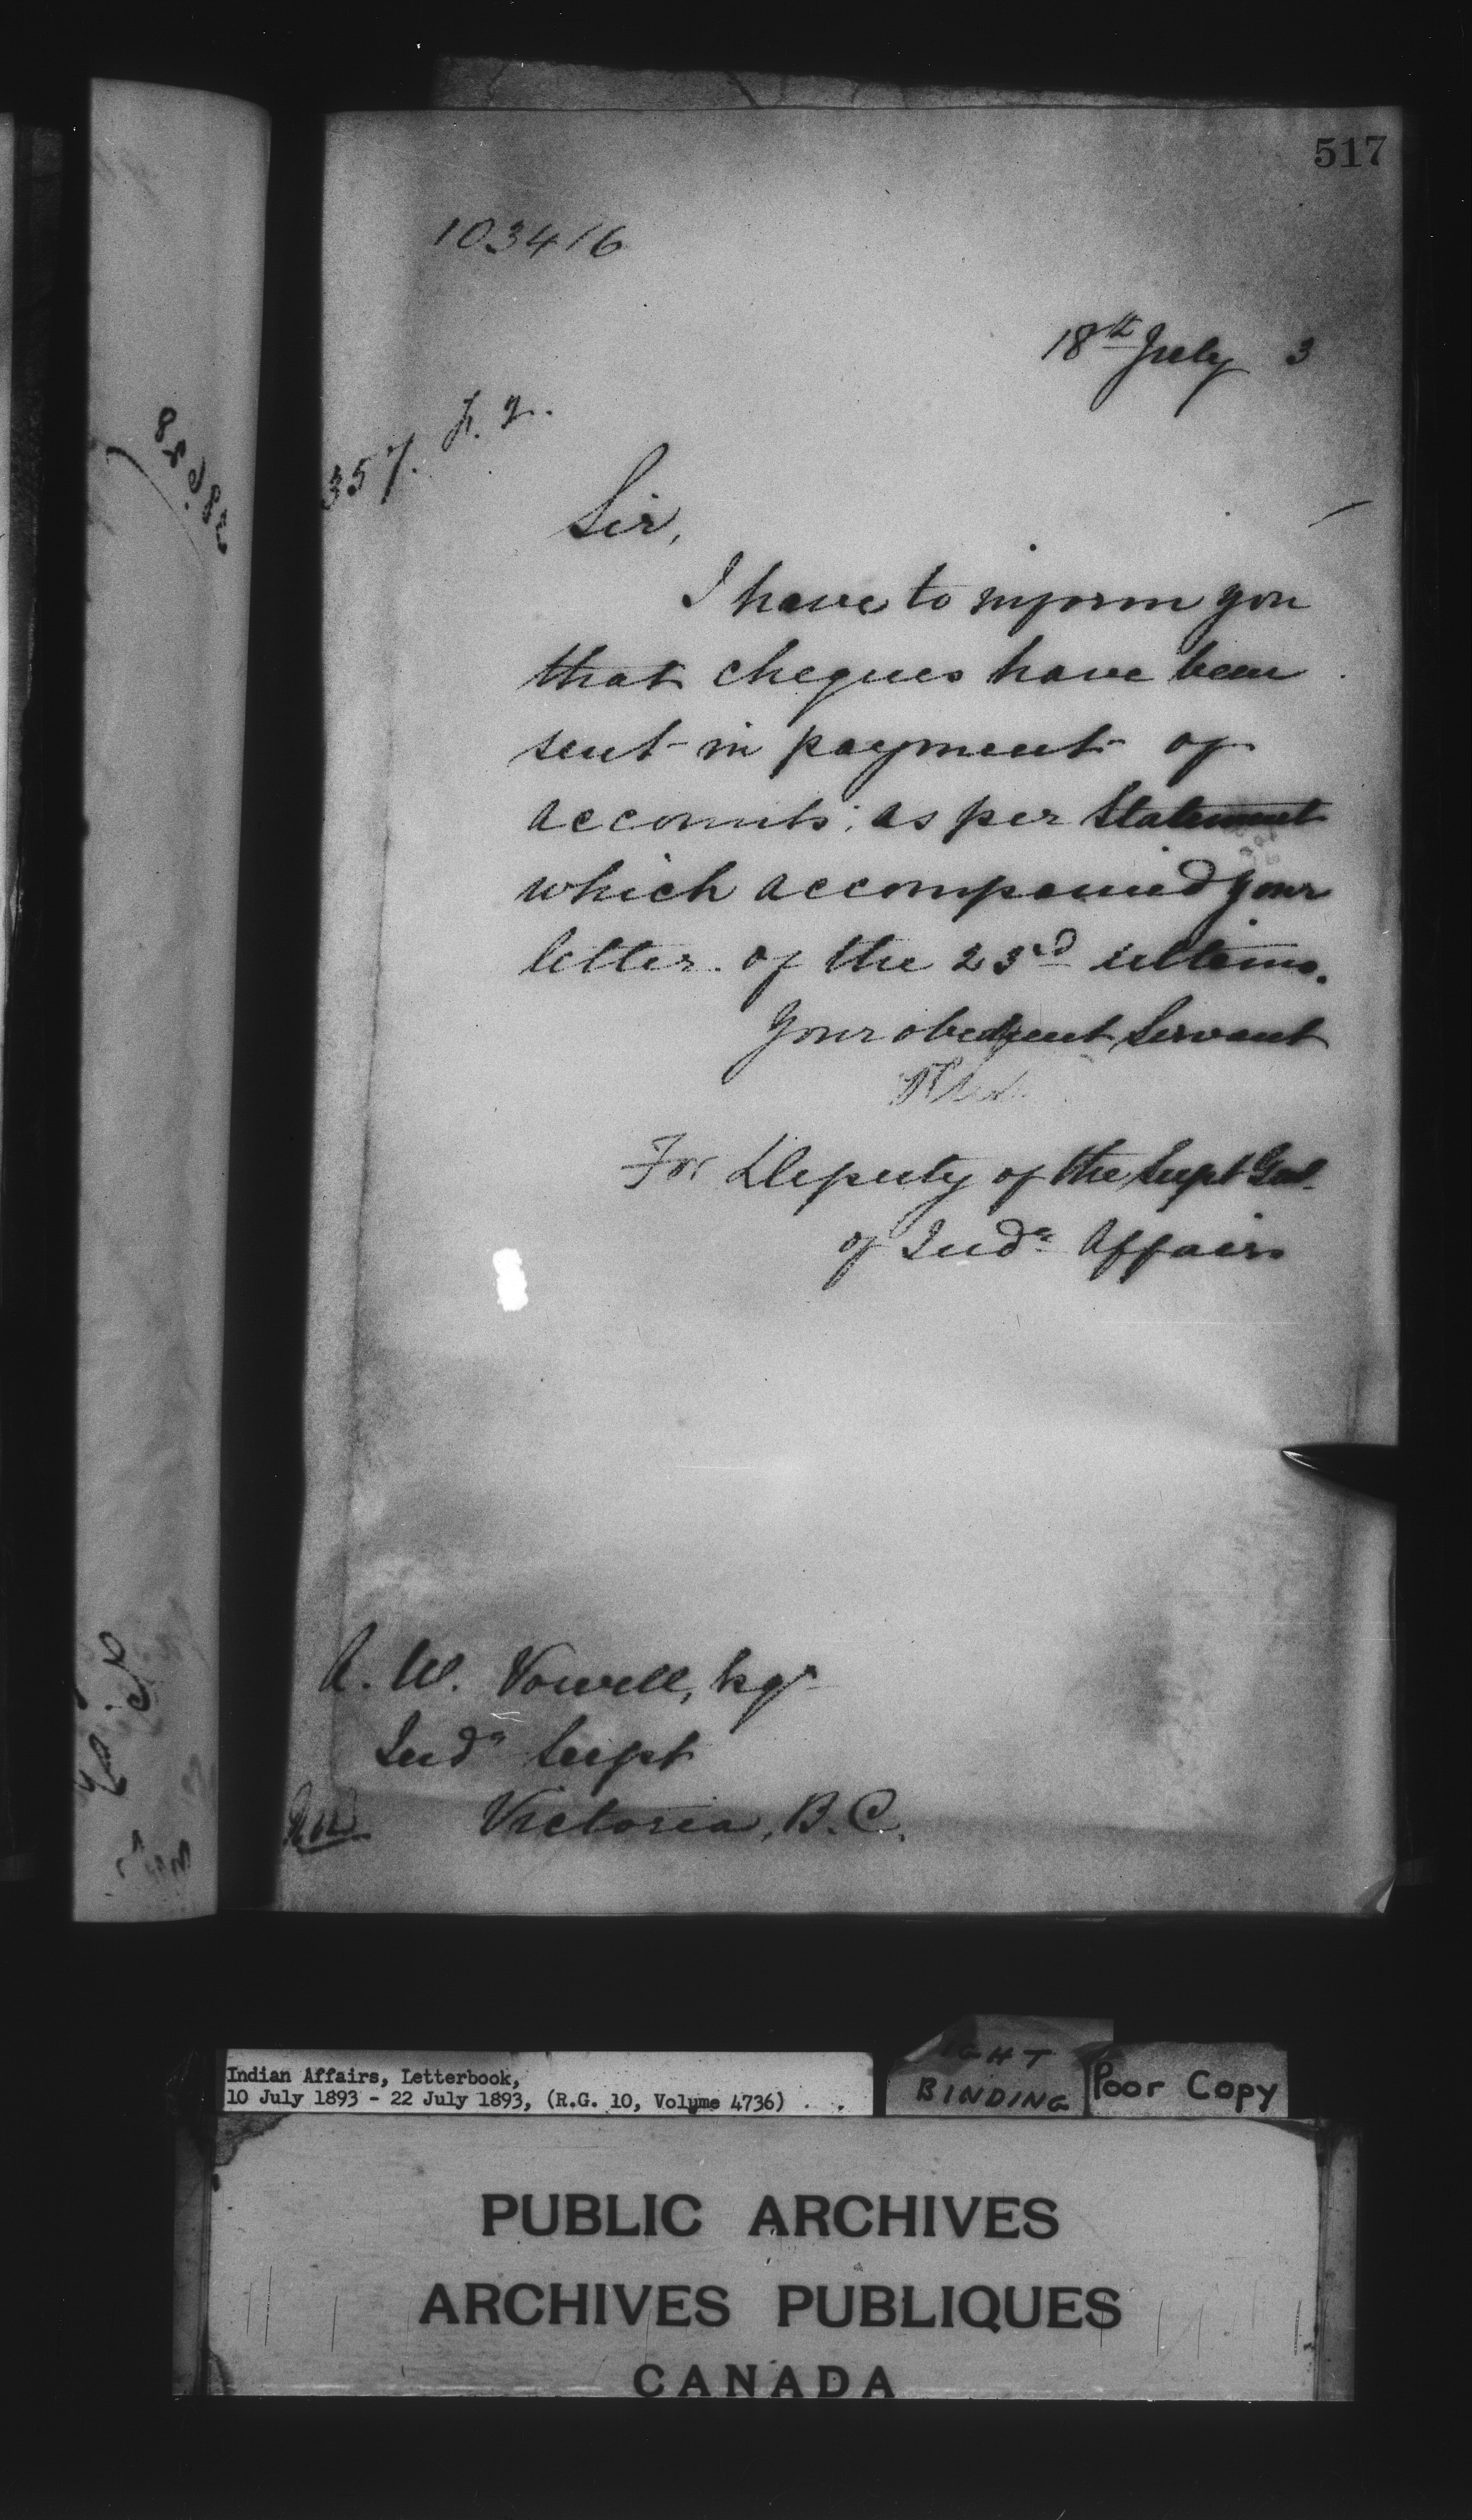 517
103416
18th July 3
357.
Sir,
I have to inform you
that cheques have been
sent in payment of
accounts as per Statement
which accompanied your
letter of the 23rd ultimo.
Your obedient Servant
For Deputy of the Supt Genl
of Indn Affairs
A. W. Vowell, Esqr
Indn Supt
Victoria, B.C.
Indian Affairs, Letterbook,
10 July 1893 - 22 July 1893, (R.G. 10, Volume 4736)
BINDING
Poor Copy
PUBLIC ARCHIVES
ARCHIVES PUBLIQUES
CANADA